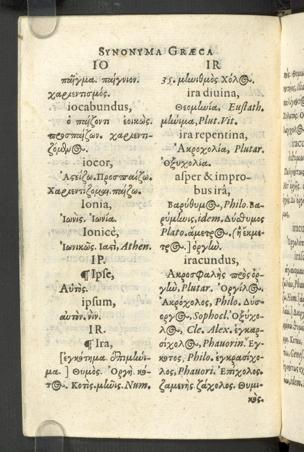 SYNONYMA GRÆCA
IO
παῖγμα. παίγνιον.
χαριεντισμός.
iocabundus,
ὁ παίζοντι ἐοικώς.
προσπαίζων. χαριεντι-
ζόμενος.
iocor,
Ἀστεΐζω. Προσπαίζω.
Χαριεντίζομαι. παίζω.
Ionia,
Ἰωνίς. Ἰωνία.
Ionicè,
Ἰωνικῶς. Ἰαστὶ, Athen.
IP.
¶ Ipse,
Αὐτός.
ipsum,
αὐτὸν. νίν.
IR.
¶ Ira,
[ἐγκότημα
μα. ] Θυμός. Ὀργή. κό-
τος. Κότις. μῆνις. Num.
IR
35. μηνιθμός. Χόλος.
ira diuina,
Θεομηνία, Eustath.
μήνιμα, Plut. Vit.
ira repentina,
Ἀκροχολία, Plutar.
Ὀξυχολία.
asper & impro-
bus irâ,
Βαρύθυμος, Philo. Βα-
ρύμηνις, idem. Δύσθυμος
Plato. ἄμετρος. (ἢ ἐκμε-
τρος.) ὀργήν.
iracundus,
Ἀκροσφαλὴς πρὸς ὀρ-
γὴν, Plutar. Ὀργίλος.
Ἀκρόχολος, Philo. Δύσ-
οργος, Sophocl. Ὀξύχο-
λος, Cle. Alex. ἐγκαρ-
σίχολος, Phauorin. Ἔγ-
κοτος, Philo. ἐγκρασίχο-
λος, Phauori. Ἐπίχολος.
ζαμενής. ζάχολος. Θυμι-
κός.